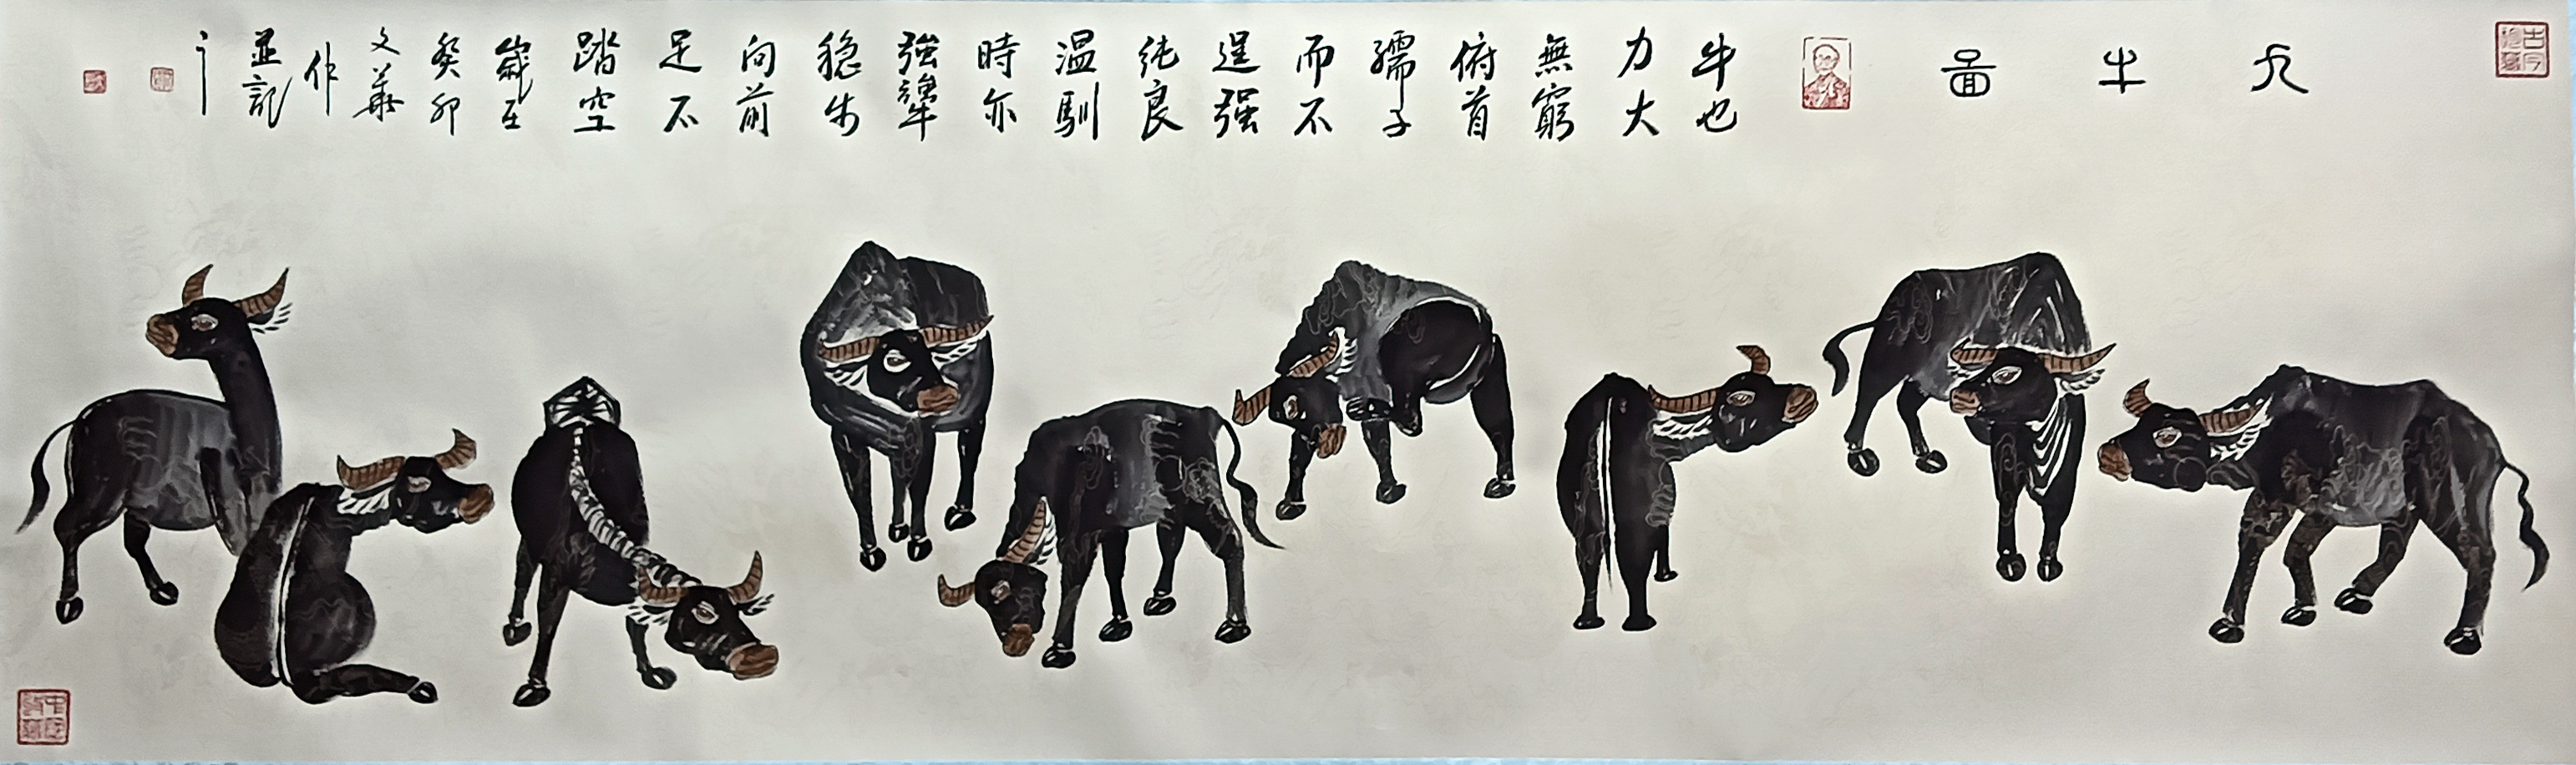 九牛圖
牛也
力大
無窮
俯首
孺子
而不
逞强
純良
温馴
時亦
強犟
稳步
向前
足不
踏空
歲在
癸卯
文華
作
並記